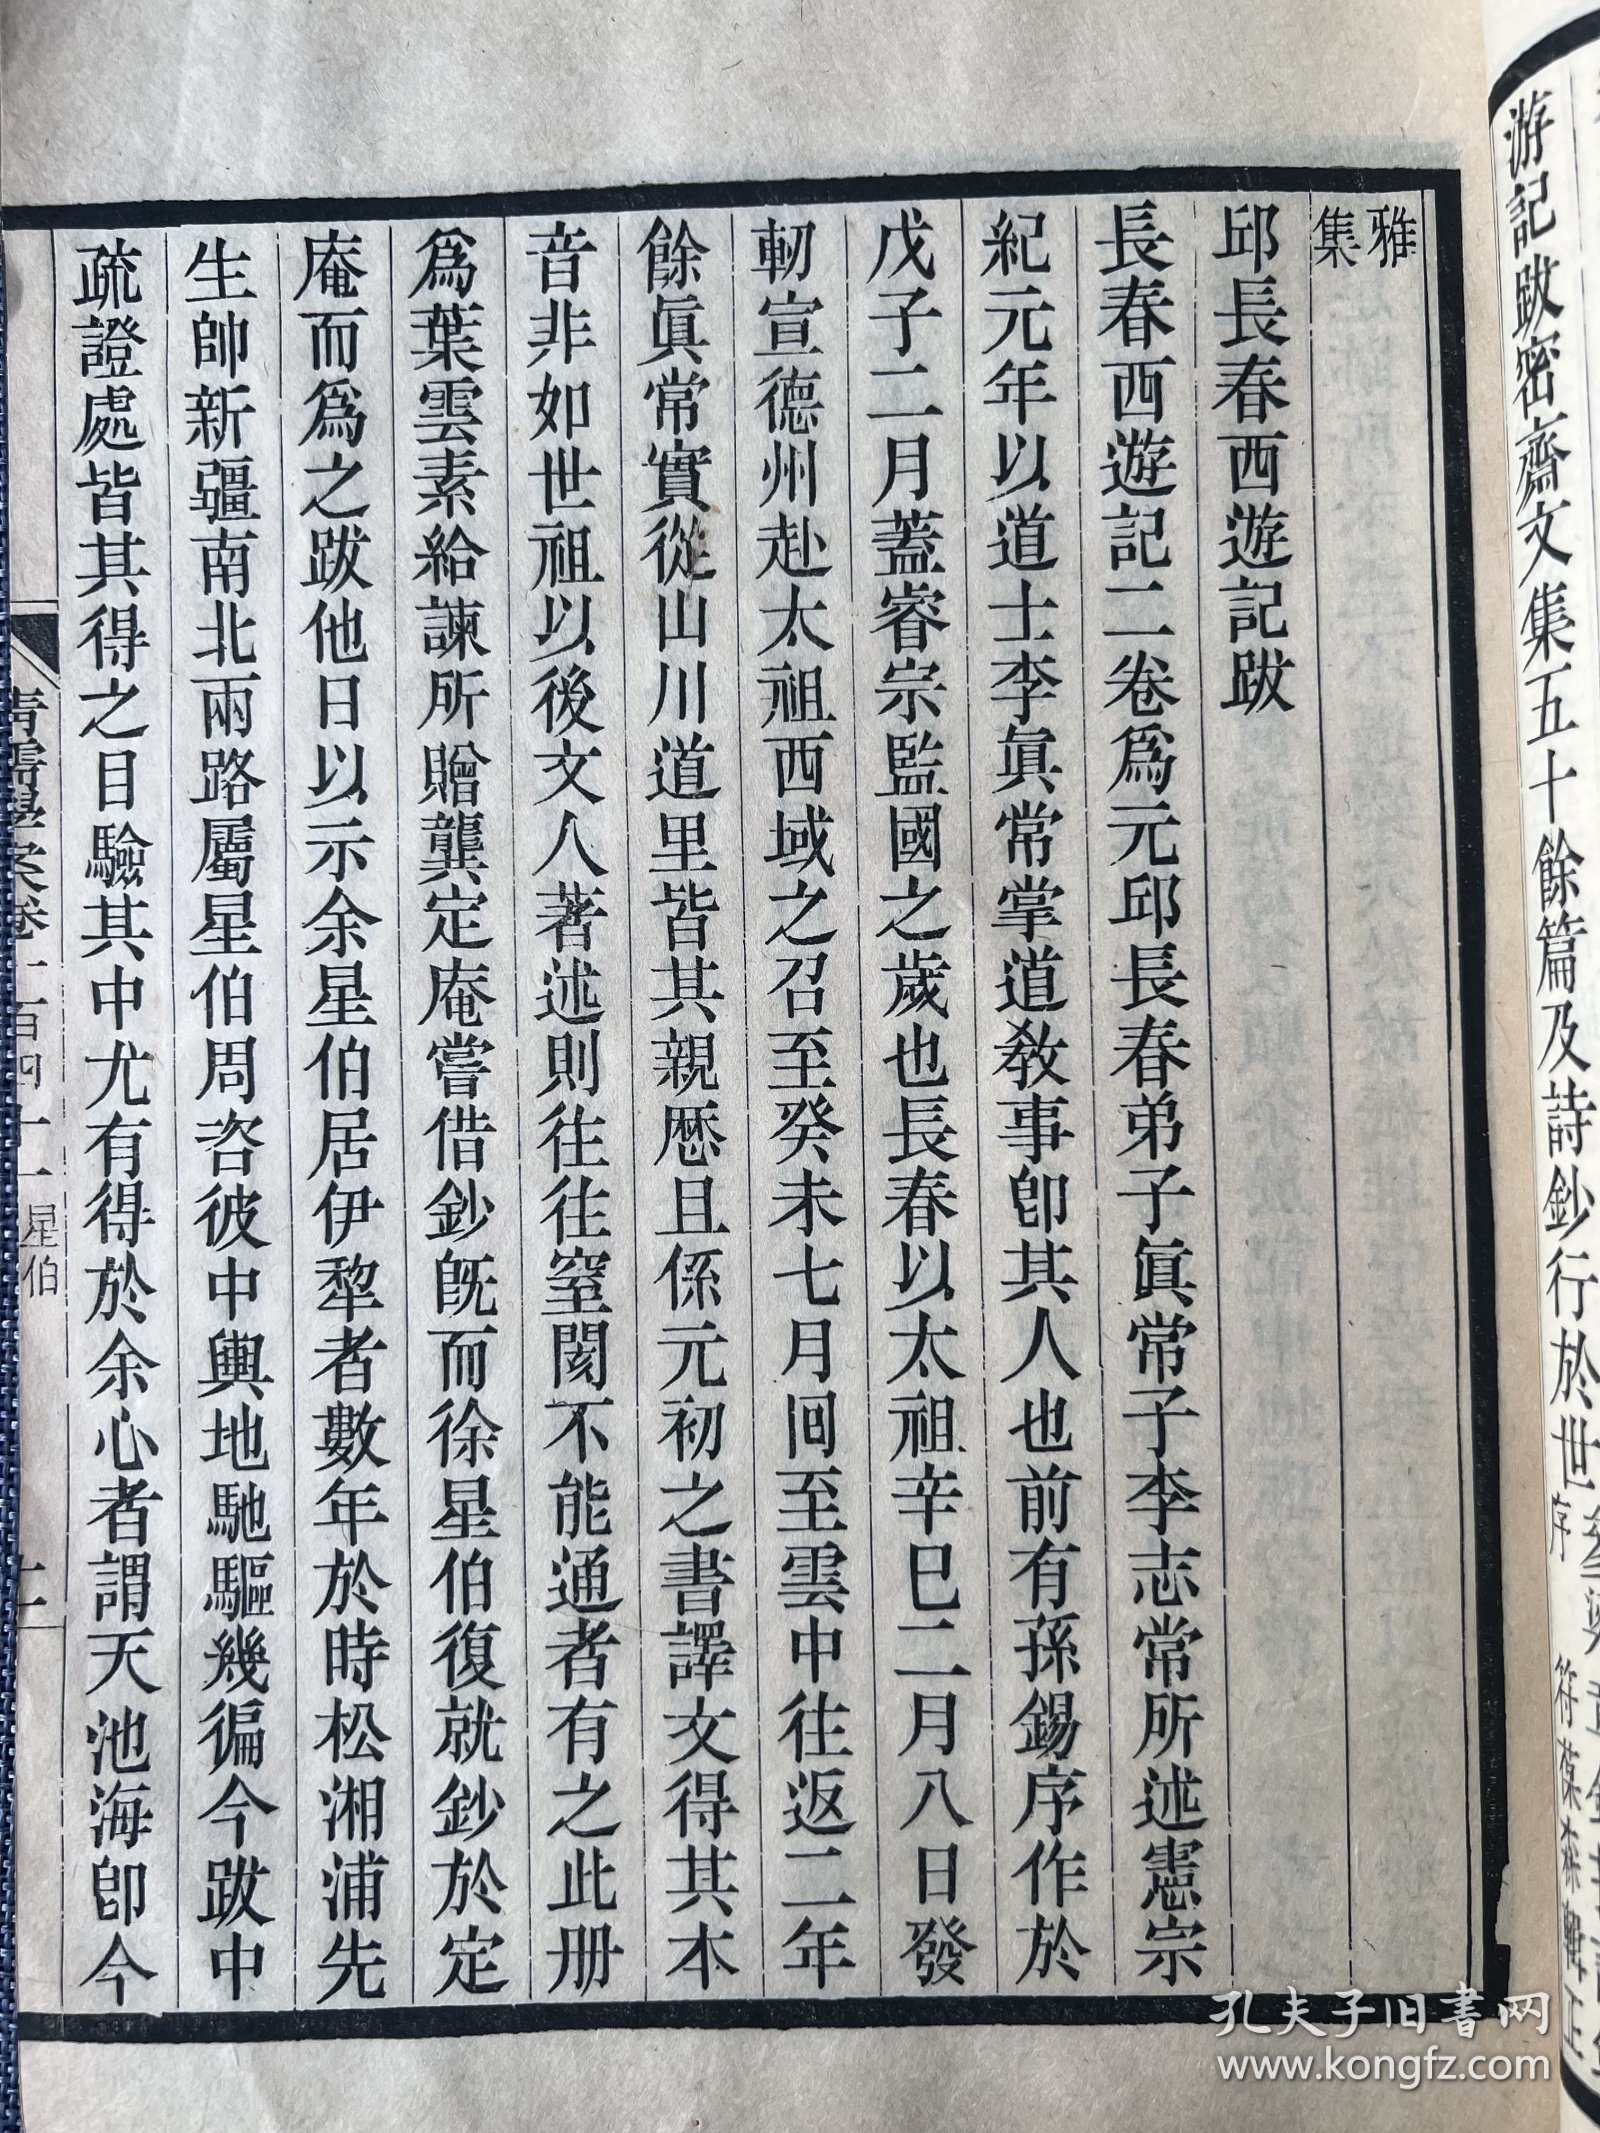 游記跋密齋文集五十餘篇及詩鈔行於世
雅
集
邱長春西遊記跋
長春西遊記二卷爲元邱長春弟子眞常子李志常所述憲宗
紀元年以道士李眞常掌道敎事卽其人也前有孫錫序作於
戊子二月蓋睿宗監國之歲也長春以太祖辛巳二月八日發
軔宣德州赴太祖西域之召至癸未七月間至雲中往返二年
餘眞常實從山川道里皆其親歷且係元初之書譯文得其本
音非如世祖以後文人著述則往往窒閡不能通者有之此册
爲葉雲素給諫所贈龔定庵嘗借鈔旣而徐星伯復就鈔於定
庵而爲之跋他日以示余星伯居伊犂者數年於時松湘浦先
生帥新疆南北兩路屬星伯周咨彼中輿地馳驅幾徧今跋中
疏證處皆其得之目驗其中尤有得於余心者謂天池海卽今
星伯
孔夫子旧書网
www.kongfz.com